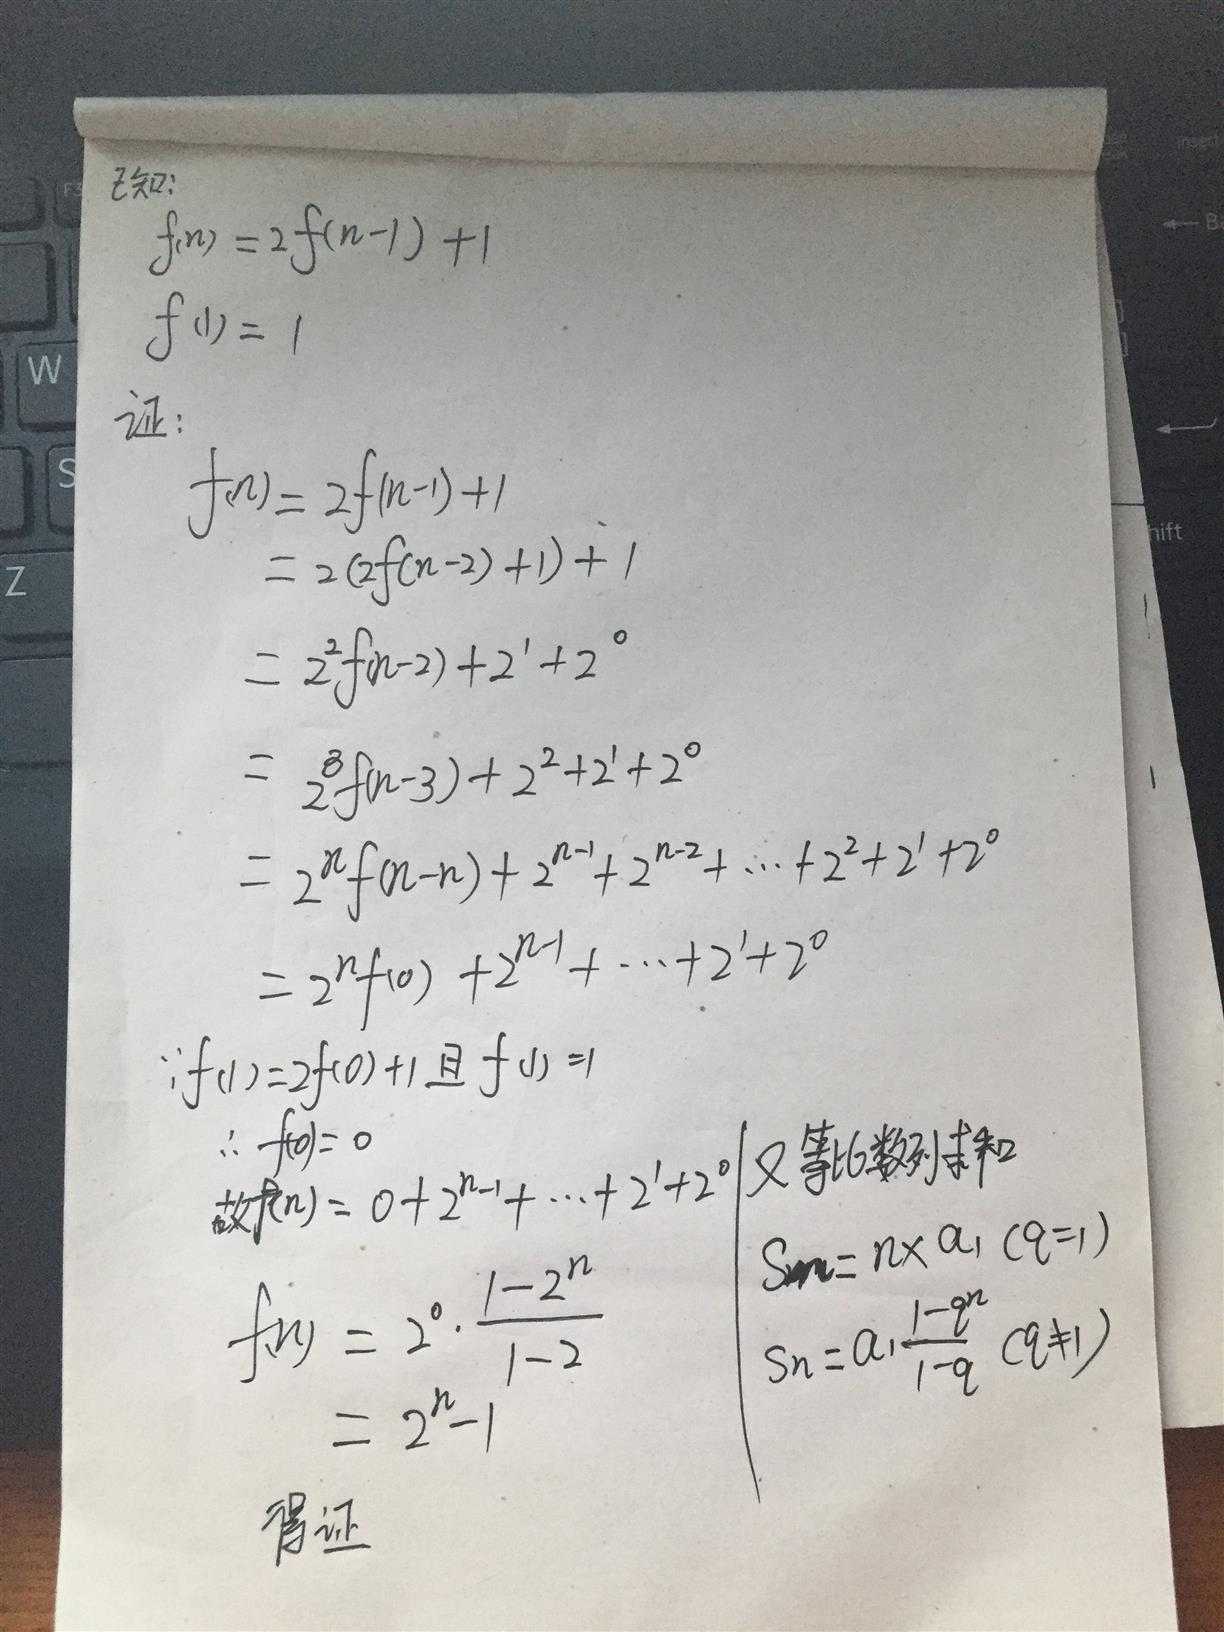 已知:
f(n) = 2f(n-1) + 1
f(1) = 1
证:
f(n) = 2f(n-1)+1
= 2(2f(n-2)+1)+1
= 2²f(n-2)+2¹+2⁰
= 2³f(n-3)+2²+2¹+2⁰
= 2ⁿf(n-n)+2ⁿ⁻¹+2ⁿ⁻²+…+2²+2¹+2⁰
= 2ⁿf(0)+2ⁿ⁻¹+…+2¹+2⁰
∵f(1)=2f(0)+1且f(1)=1
∴f(0)=0
故f(n)=0+2ⁿ⁻¹+…+2¹+2⁰
f(n) = 2⁰·(1-2ⁿ)/(1-2)
= 2ⁿ-1
得证
又等比数列求和
Sn=n×a₁(q=1)
Sn=a₁(1-qⁿ)/(1-q)(q≠1)
W
S
Z
hift